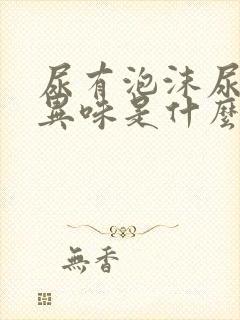 尿有泡沫尿
異味是什麼
無香